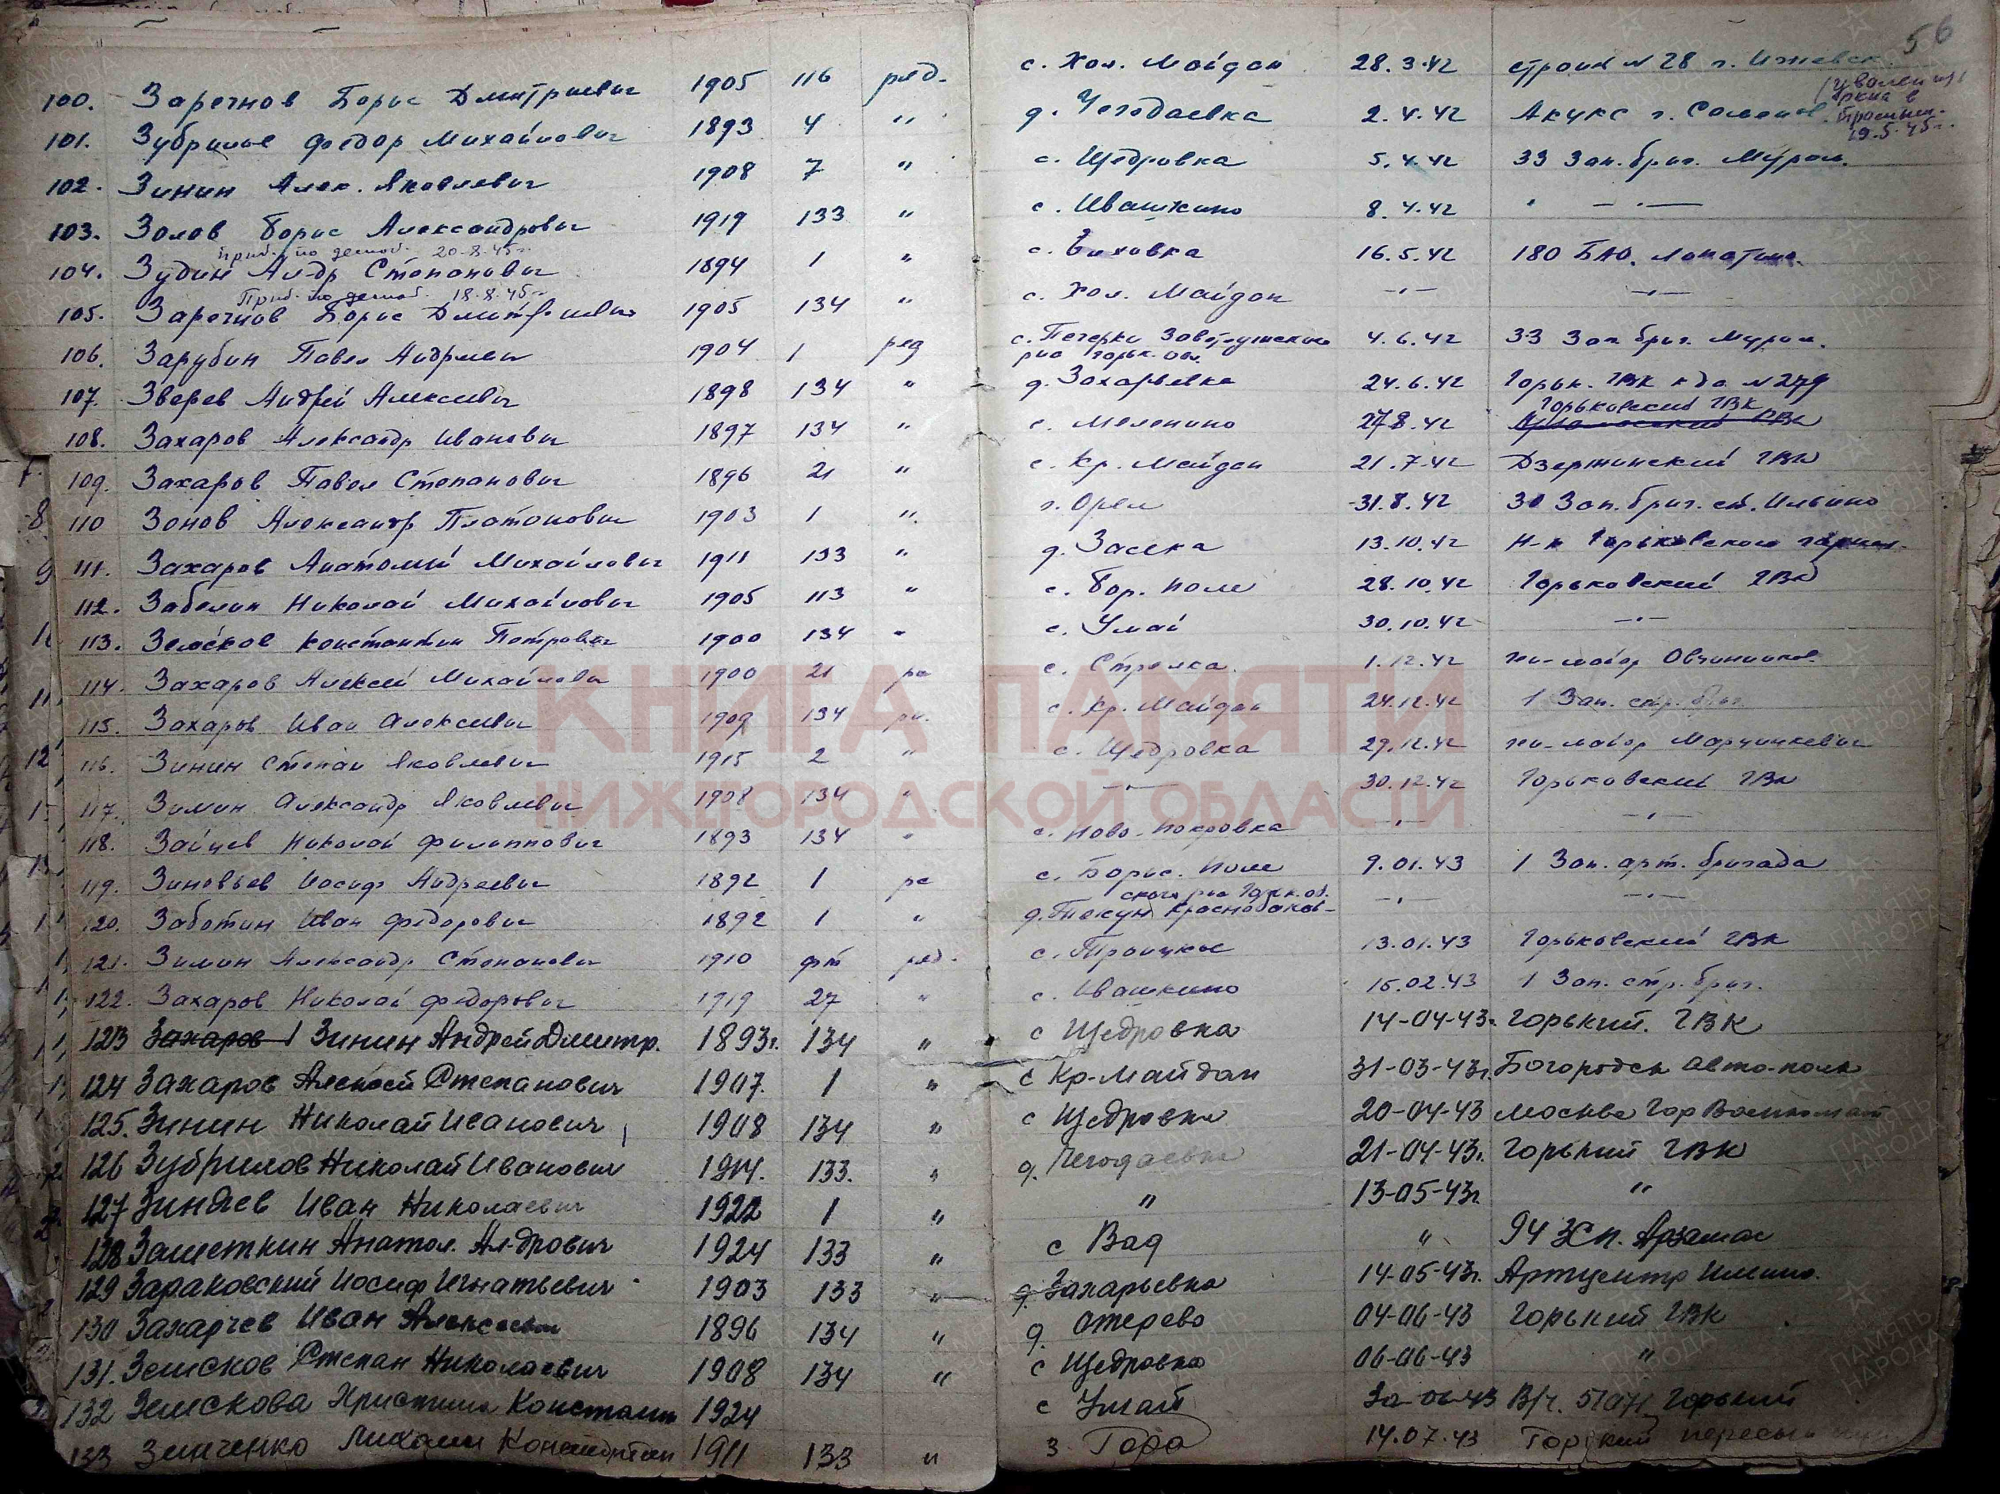 56
100. Заречнов Борис Дмитриевич 1905 116 ряд. с. Хол. Майдан 28.3.42 строит N 28 г. Ижевск
101. Зубрилов Федор Михайлович 1893 4 " д. Чегодаевка 2.4.42 Акукс г.
19.5.45г.
102. Зинин Алек. Яковлевич 1908 7 " с. Щедровка 5.4.42 33 Зап. бриг. Муром.
103. Золов Борис Александрович 1919 133 " с. Ивашкино 8.4.42 " — " —
Приб. по демоб. 20.8.45г.
104. Зудин Ал-др Степанович 1894 1 " с. 16.5.42 180 БАО. Лопатино.
Приб. по демоб. 18.8.45г.
105. Заречнов Борис Дмитриевич 1905 134 " с. Хол. Майдан — " — — " —
106. Зарубин Павел Андреевич 1904 1 ряд с. Печерки рна Горьк. обл. 4.6.42 33 Зап. бриг. Муром.
107. Зверев Андрей Алексеевич 1898 134 " д. Захарьевка 24.6.42 Горьк. ГВК кда N 279
Горьковский ГВК
108. Захаров Александр Иванович 1897 134 " с. Меленино 27.8.42
109. Захаров Павел Степанович 1896 21 " с. Кр. Майдан 21.7.42 Дзержинский ГВК
110 Зонов Александр Платонович 1903 1 " г. Орел 31.8.42 30 Зап. бриг. ст. Ильино
111. Захаров Анатолий Михайлович 1911 133 " д. Засека 13.10.42 Н-к Горьковского гарниз.
112. Забелин Николай Михайлович 1905 113 " с. Бор. поле 28.10.42 Горьковский ГВК
113. Земсков Константин Петрович 1900 134 " с. Умай 30.10.42 — " —
114. Захаров Алексей Михайлович 1900 21 ря с. Стрелка 1.12.42 ген-майор Овчинников
115. Захаров Иван Алексеевич 1909 134 ря. с. Кр. Майдан 24.12.42 1 Зап. стр. бриг
116. Зинин Степан Яковлевич 1915 2 " с. Щедровка 29.12.42 ген-майор Марцинкевич
117. Зимин Александр Яковлевич 1908 134 " — " — 30.12.42 Горьковский ГВК
118. Зайцев Николай Филиппович 1893 134 " с. Ново-Покровка — " — — " —
119. Зиновьев Иосиф Андреевич 1892 1 ря с. Борис. Поле 9.01.43 1 Зап. арт. бригада
120. Заботин Иван Федорович 1892 1 " д. Текун Краснобаковского рна Горьк. об. — " — — " —
121. Зимин Александр Степанович 1910 фт ряд. с. Троицкое 13.01.43 Горьковский ГВК
122. Захаров Николай Федорович 1919 27 " с. Ивашкино 15.02.43 1 Зап. стр. бриг.
123 Захаров Зинин Андрей Дмитр. 1893г. 134 " с Щедровка 14-04-43г. Горький. ГВК
124 Захаров Алексей Степанович 1907. 1 " с Кр-Майдан 31-03-43г. Богородск авто-полк
125. Зинин Николай Иванович 1908 134 " с Щедровка 20-04-43 Москва Гор Военкомат
126 Зубрилов Николай Иванович 1914. 133. " д. Чегодаевка 21-04-43г. Горький ГВК
127 Зиняев Иван Николаевич 1922 1 " " 13-05-43г. "
128 Заметкин Анатол. Ал-дрович 1924 133 " с Вад " 94 ЗСП. Арзамас
129 Зараковский Иосиф Игнатьевич 1903 133 " д. Захарьевка 14-05-43г. Артцентр Ильино.
130 Захарчев Иван Алексеевич 1896 134 " д. Отерево 04-06-43 Горький ГВК
131. Земсков Степан Николаевич 1908 134 " с Щедровка 06-06-43 "
132 Земскова Христина Констант 1924 с Умай 30-06-43 В/ч. Горький
133 Зинченко Михаил 1911 133 " з. Гора 14.07.43 Горький пересыл
КНИГА ПАМЯТИ
НИЖЕГОРОДСКОЙ ОБЛАСТИ
ПАМЯТЬ НАРОДА